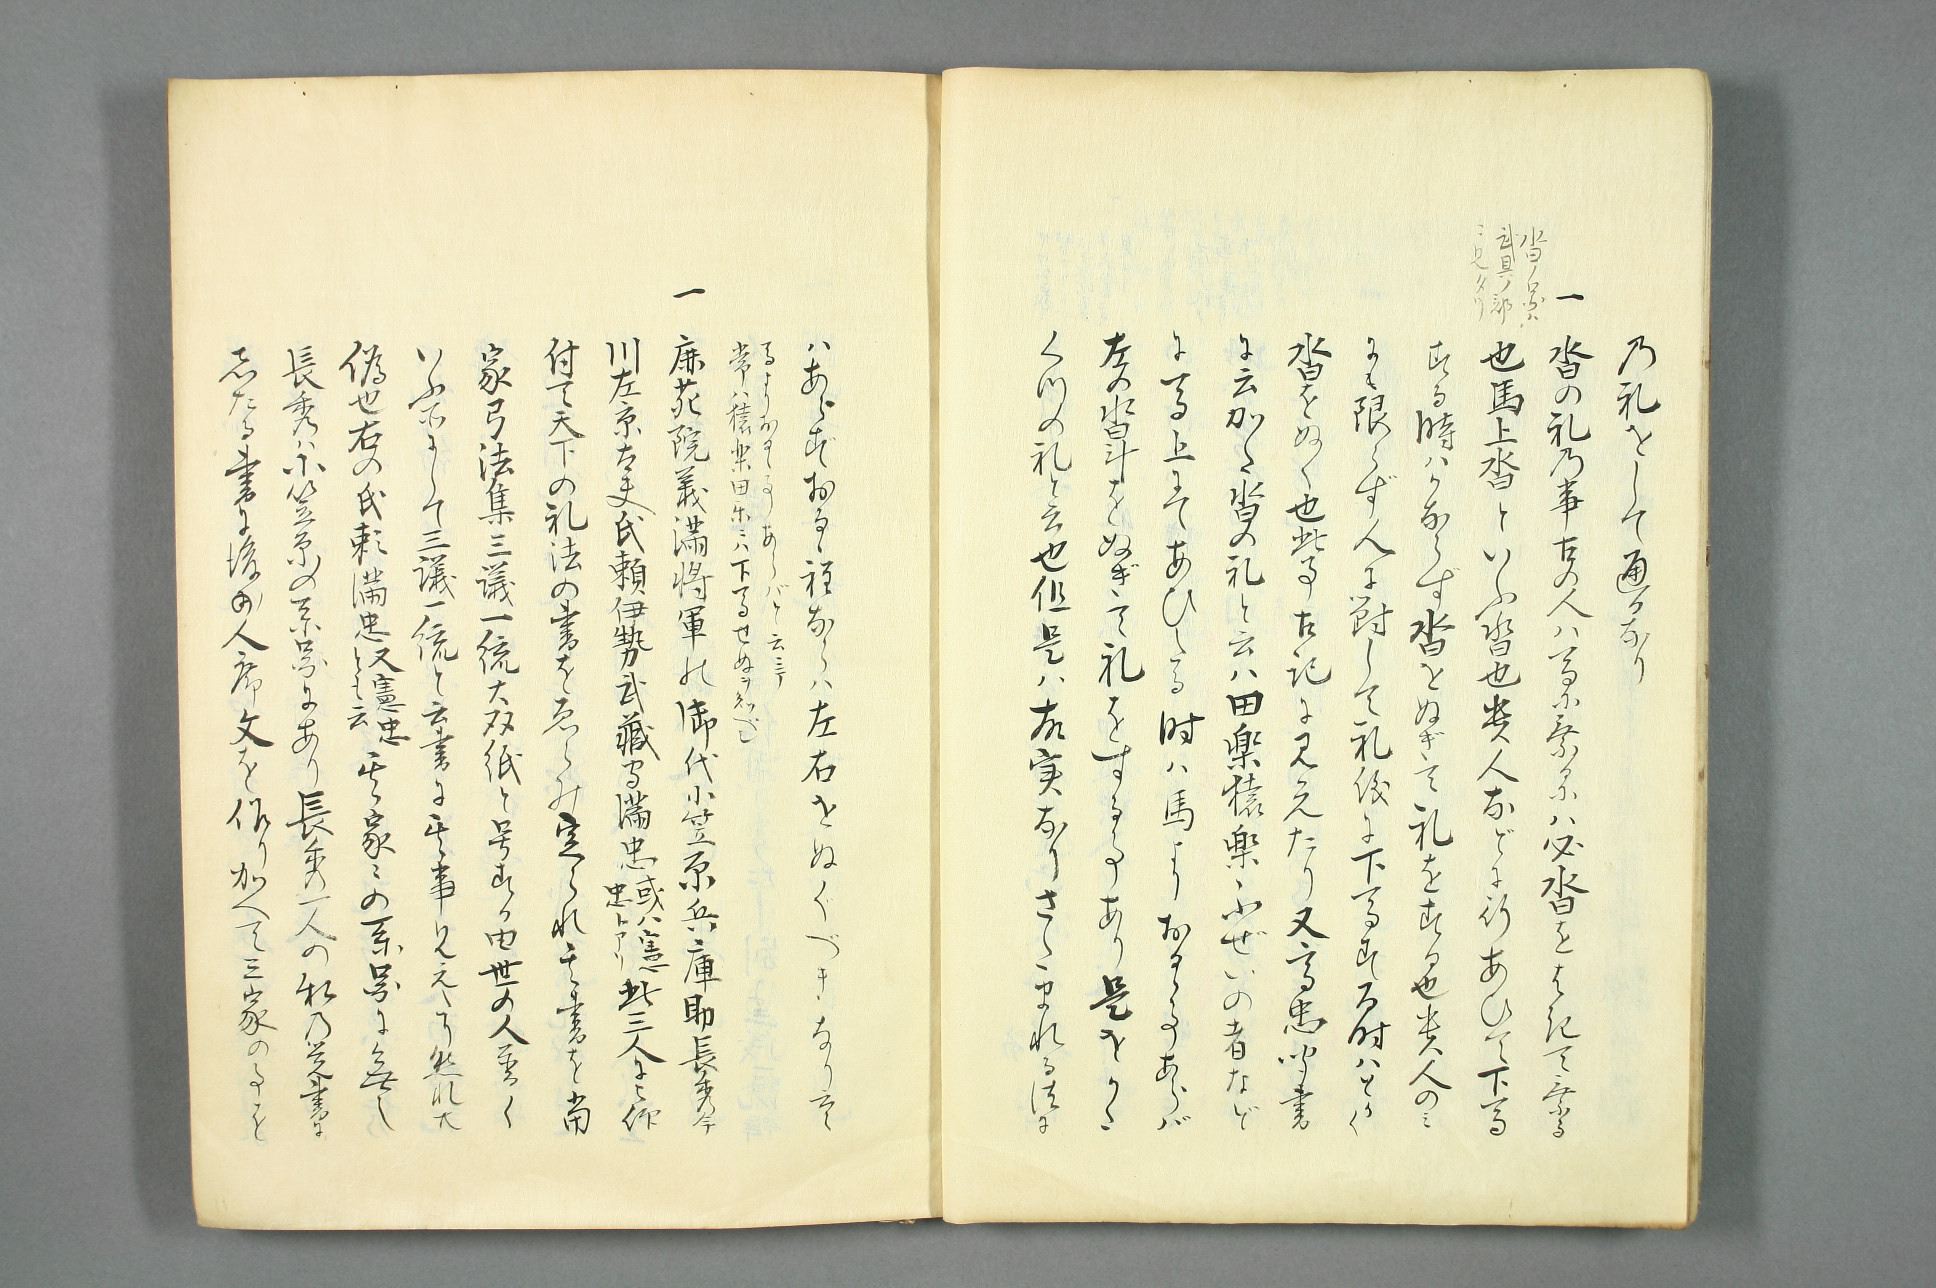 乃礼をして通るなり
沓ノ図ハ
武具ノ部
ニ見タリ
一 沓の礼乃事古の人ハ馬に乗るにハ必沓をはきて乗る
也馬上沓といふ沓也貴人などに行あひて下馬
する時ハかならず沓をぬぎて礼をする也貴人のミ
にも限らず人に対して礼儀に下馬する時ハとかく
沓をぬく也此事古記に見えたり又高忠聞書
に云かた沓の礼と云ハ田楽猿楽こ小ぜいの者など
に馬上にてあひたる時ハ馬よりおるゝ事あらバ
左の沓斗をぬぎて礼をする事あり是をかた
くつの礼と云也但是ハ故実なりさたまれる法に
ハあらずおるゝ程ならハ左右をぬくべきなりと云々
馬よりおるゝ事あらバと云ニテ
常ハ猿楽田楽ニハ下馬せぬヲ知べし
一 鹿苑院義満将軍の御代小笠原兵庫助長秀今
川左京大夫氏頼伊勢武蔵守満忠或ハ憲忠トアリ此三人に被仰
付て天下の礼法の書をゑらみ定られ其書を当
家弓法集三議一統大双紙と号する由世の人普く
いふ所にして三議一統と云書に其事見えたり然れ共
偽也右の氏頼満忠又憲忠とも云其家々の系図に無し
長秀ハ小笠原の系図にあり長秀一人の私乃覚書に
志たる書に後の人序文を作り加へて三家の事を